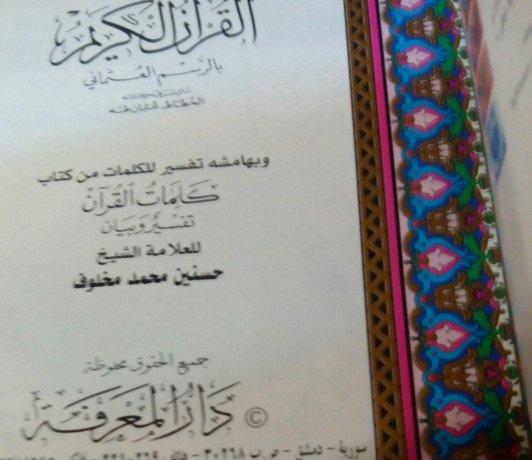 القرآن الكريم
بالرسم العثماني
الخطاط عثمان طه
وبهامشه تفسير للكلمات من كتاب
كلمات القرآن
تفسير وبيان
للعلامة الشيخ
حسنين محمد مخلوف
جميع الحقوق محفوظة
© دار المعرفة
سورية - دمشق - ص ب ٣٠٢٦٨